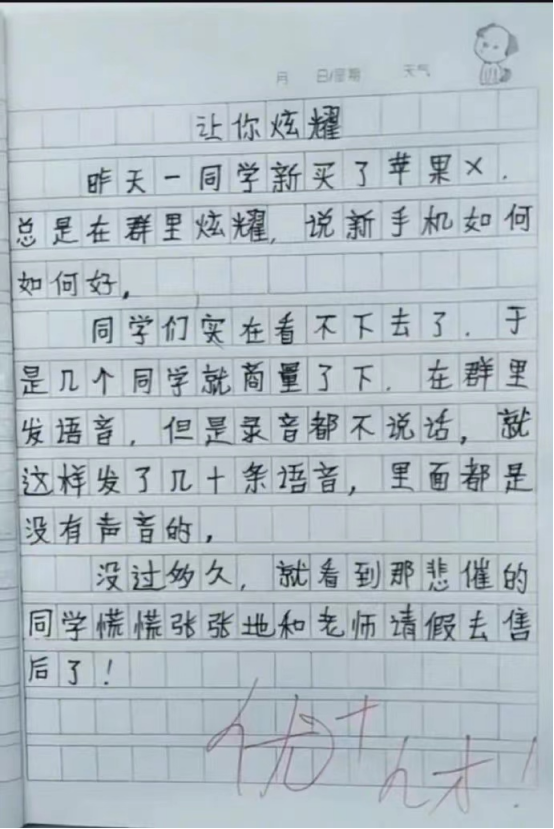 月 日/星期 天气
让你炫耀
昨天一同学新买了苹果X.
总是在群里炫耀,说新手机如何
如何好。
同学们实在看不下去了.于
是几个同学就商量了下.在群里
发语音,但是录音都不说话,就
这样发了几十条语音,里面都是
没有声音的。
没过多久,就看到那悲催的
同学慌慌张张地和老师请假去售
后了!
优+ 人才!